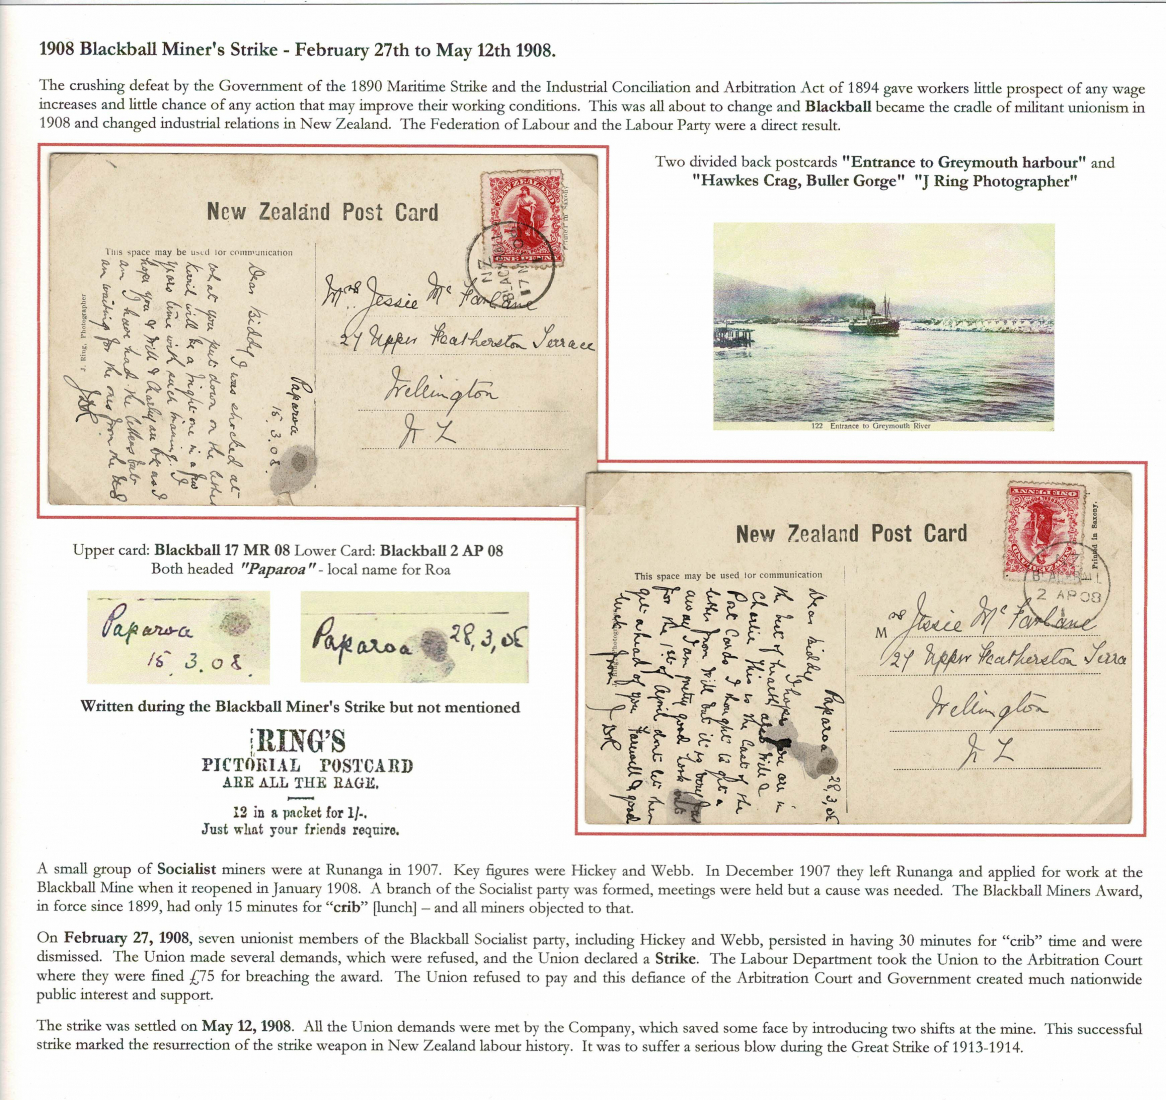 1908 Blackball Miner's Strike - February 27th to May 12th 1908.
The crushing defeat by the Government of the 1890 Maritime Strike and the Industrial Conciliation and Arbitration Act of 1894 gave workers little prospect of any wage
increases and little chance of any action that may improve their working conditions. This was all about to change and Blackball became the cradle of militant unionism in
1908 and changed industrial relations in New Zealand. The Federation of Labour and the Labour Party were a direct result.
Two divided back postcards "Entrance to Greymouth harbour" and
"Hawkes Crag, Buller Gorge" "J Ring Photographer"
New Zealand Post Card
This space may be used for communication
NEW ZEALAND
ONE PENNY
Mrs Jessie Mc Farlane
27 Upper Featherston Terrace
Wellington
N Z
Paparoa
15.3.08.
Dear Biddy I was shocked at
what you put down on the letter
will be a bright one in a few
years time with such training. I
hope you & Will & Charley are ok as I
am I have had the letters but
am waiting for the ones from the
JDR
J. Ring, Photographer
122 Entrance to Greymouth River
New Zealand Post Card
This space may be used for communication
ONE PENNY
NEW ZEALAND
Printed in Saxony.
BLACKBALL
2 AP 08
Mrs Jessie Mc Farlane
27 Upper Featherston Terra
Wellington
N Z
Paparoa 28,3,08
Dear Biddy
I hope you are in
the best of health also Will &
Charlie This is the last of the
Post Cards I thought to get a
letter from Will but it is very far
away I am pretty good look out
for the 1st of April dont let them
get ahead of you Farewell & good
luck from JDR
Upper card: Blackball 17 MR 08 Lower Card: Blackball 2 AP 08
Both headed "Paparoa" - local name for Roa
Paparoa
15 3.08.
Paparoa 28,3,08
Written during the Blackball Miner's Strike but not mentioned
RING'S
PICTORIAL POSTCARD
ARE ALL THE RAGE.
12 in a packet for 1/-.
Just what your friends require.
A small group of Socialist miners were at Runanga in 1907. Key figures were Hickey and Webb. In December 1907 they left Runanga and applied for work at the
Blackball Mine when it reopened in January 1908. A branch of the Socialist party was formed, meetings were held but a cause was needed. The Blackball Miners Award,
in force since 1899, had only 15 minutes for “crib” [lunch] – and all miners objected to that.
On February 27, 1908, seven unionist members of the Blackball Socialist party, including Hickey and Webb, persisted in having 30 minutes for “crib” time and were
dismissed. The Union made several demands, which were refused, and the Union declared a Strike. The Labour Department took the Union to the Arbitration Court
where they were fined £75 for breaching the award. The Union refused to pay and this defiance of the Arbitration Court and Government created much nationwide
public interest and support.
The strike was settled on May 12, 1908. All the Union demands were met by the Company, which saved some face by introducing two shifts at the mine. This successful
strike marked the resurrection of the strike weapon in New Zealand labour history. It was to suffer a serious blow during the Great Strike of 1913-1914.